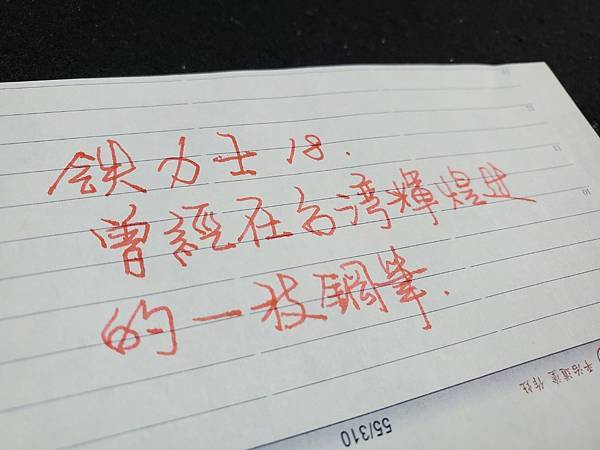 鉄力士 18.
曾經在台湾輝煌过
的一枝鋼筆.
55/310